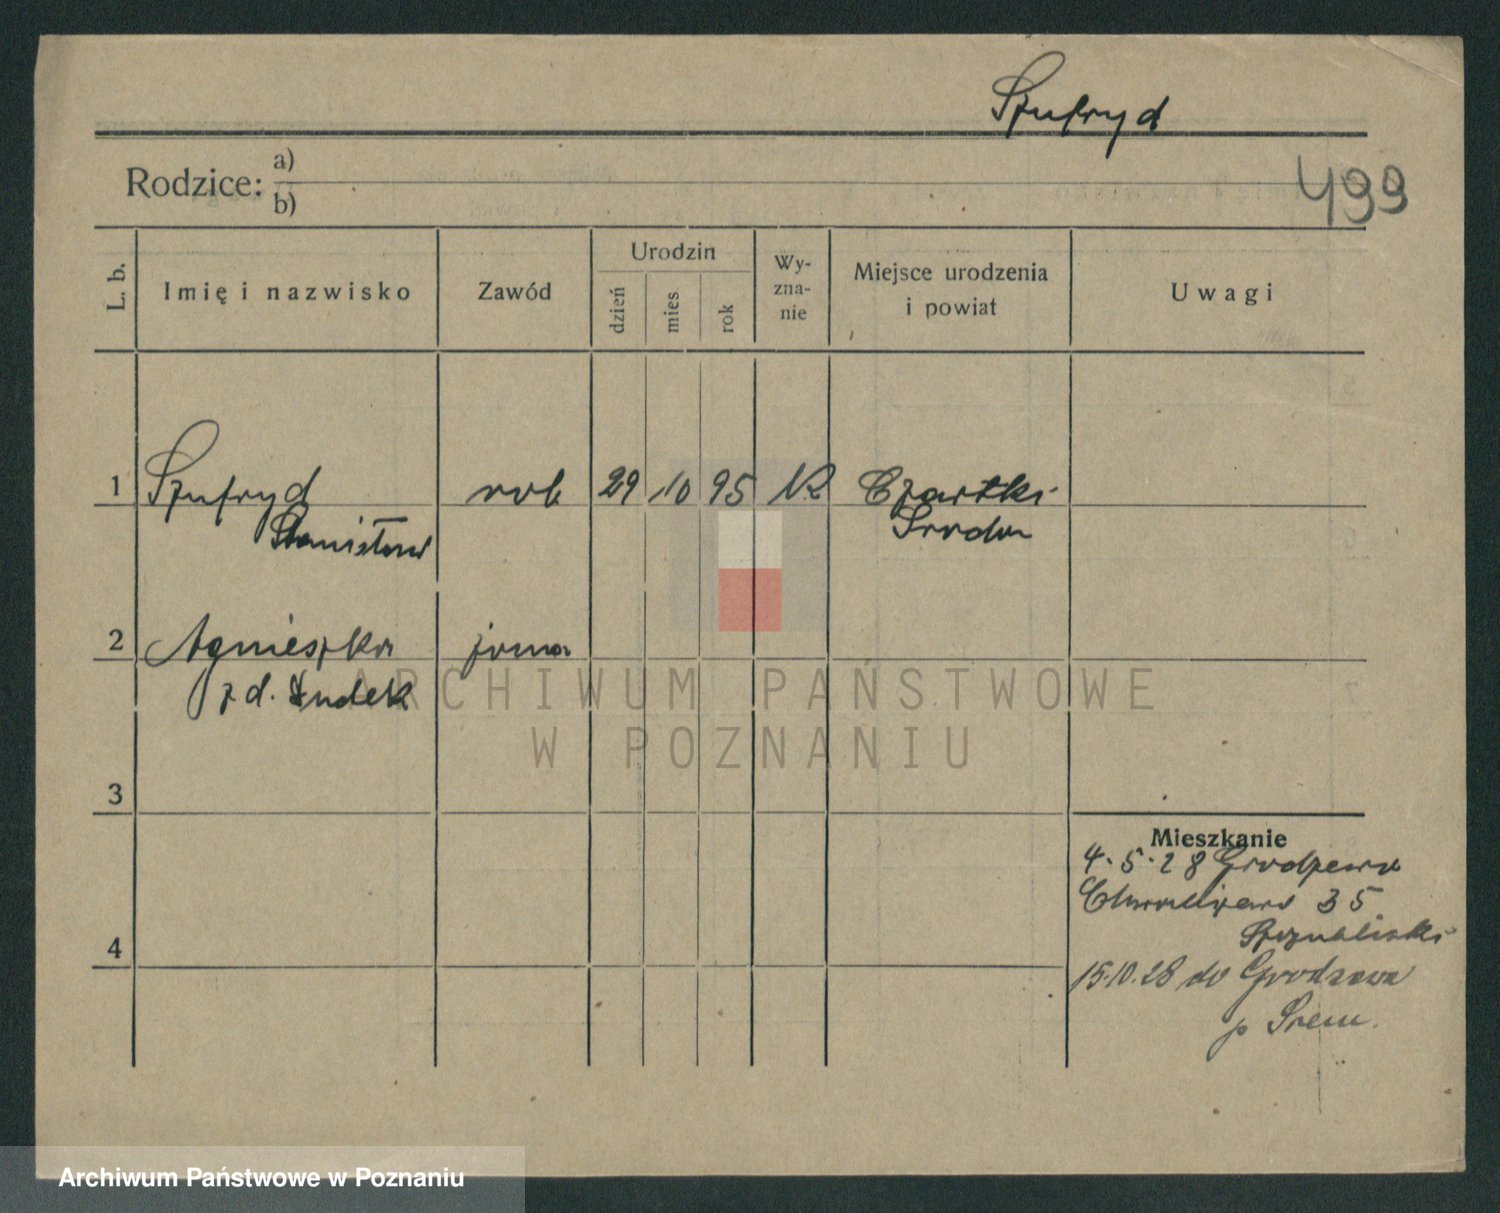 Szufryd
Rodzice: a)
b)
499
L. b.
Imię i nazwisko
Zawód
Urodzin
dzień
mies
rok
Wy-
zna-
nie
Miejsce urodzenia
i powiat
Uwagi
1 Szufryd rob 29 10 95 K Czartki
Stanisław Środa
2 Agnieszka żona
z d. Dudek
ARCHIWUM PAŃSTWOWE
W POZNANIU
3
Mieszkanie
4.5.28 Grodzewo
Chwaliszewo 35
4
15.10.28 do Grodzewa
p Śrem.
Archiwum Państwowe w Poznaniu